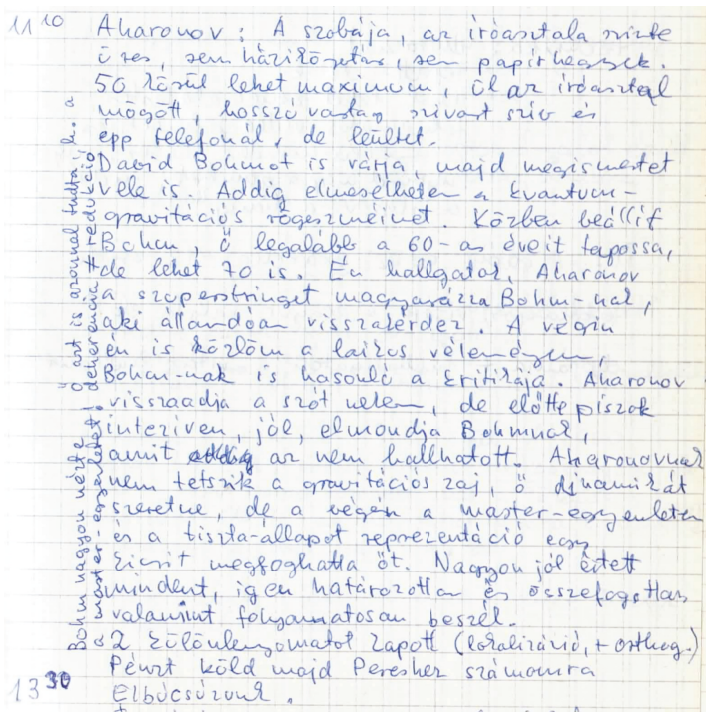 11 10 Aharonov: A szobája, az íróasztala szinte
üres, sem házikönyvtár, sem papírhegyek.
50 körül lehet maximum, ül az íróasztal
mögött, hosszú vastag szivart szív és
épp telefonál, de leültet.
David Bohmot is várja, majd megismertet
vele is. Addig elmesélhetem a kvantum-
gravitációs rögeszméimet. Közben beállít
Bohm, ő legalább a 60-as éveit tapossa,
de lehet 70 is. Én hallgatok, Aharonov
a szuperstringet magyarázza Bohm-nak,
aki állandóan visszakérdez. A végén
én is közlöm a laikus véleményem,
Bohm-nak is hasonló a kritikája. Aharonov
visszaadja a szót nekem, de előtte piszok
intezíven, jól, elmondja Bohmnak,
amit az nem hallhatott. Aharonovnak
nem tetszik a gravitációs zaj, ő dinamikát
szeretne, de a végén a master-egyenletem
és a tiszta-állapot reprezentáció egy
kicsit megfoghatta őt. Nagyon jól értett
mindent, igen határozottan és összefogottan
valamint folyamatosan beszél.
2 különlenyomatot kapott (lokalizáció, + orthog.)
Pénzt küld majd Pereshez számomra
13 30 Elbúcsúzunk.
Bohm nagyon nézte a
master-egyenletet! Ő azt is azonnal tudta, h. a
dekoherencia ≠ redukció